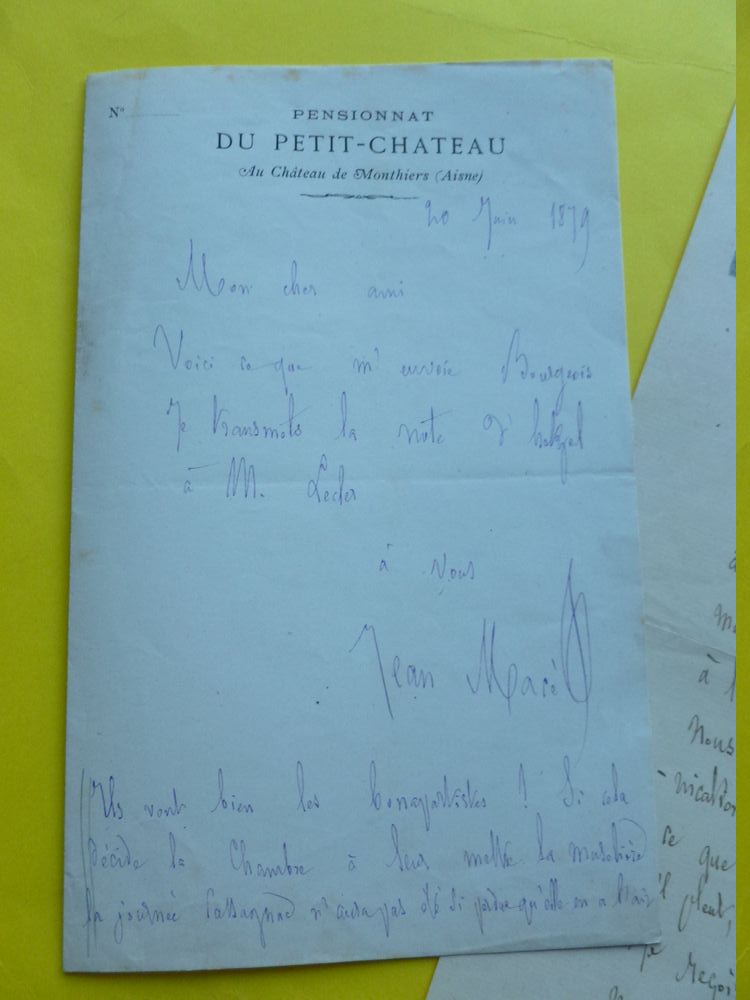 N°
PENSIONNAT
DU PETIT-CHATEAU
Au Château de Monthiers (Aisne)
20 Juin 1879
Mon cher ami
Voici ce que m'envoie Bourgeois
Je transmets la note d'hetzel
à M. Lecler
à vous
Jean Macé
Ils vont bien les bonapartistes ! Si cela
décide la Chambre à leur mettre la muselière
la journée Cassagnac n'aura pas été si perdue qu'elle en a l'air
à l
nous
ce que
il pleut,
Je